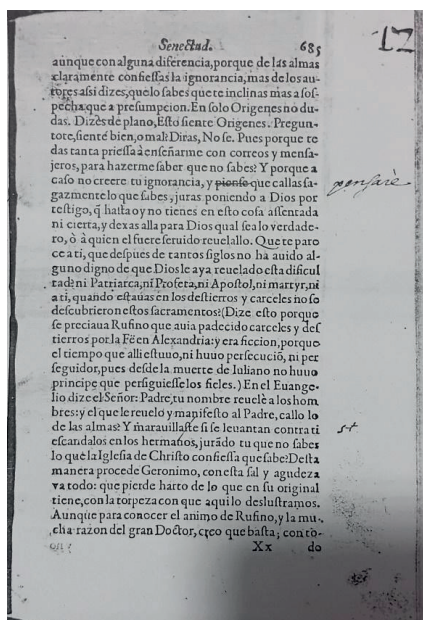 Senectud. 685
12
aunque con alguna diferencia, porque de las almas
claramente confiessas la ignorancia, mas de los au-
tores assi dizes, que lo sabes que te inclinas mas a sos-
pecha que a presumpcion. En solo Origenes no du-
das. Dizes de plano, Esto siente Origenes. Pregun-
tote, siente bien, o mal? Diras, No se. Pues porque te
das tanta priessa à enseñarme con correos y mensa-
jeros, para hazerme saber que no sabes? Y porque a
caso no creere tu ignorancia, y pienso que callas sa-
pensarè
gazmente lo que sabes, juras poniendo a Dios por
testigo, q̃ hasta oy no tienes en esto cosa assentada
ni cierta, y dexas alla para Dios qual sea lo verdade-
ro, ò à quien el fuere seruido reuelallo. Que te pare
ce a ti, que después de tantos siglos no ha auido al-
guno digno de que Dios le aya reuelado esta dificul
tad? ni Patriarca, ni Profeta, ni Apostol, ni martyr, ni
a ti, quando estauas en los destierros y carceles no se
descubrieron estos sacramentos? (Dize esto porque
se preciaua Rufino que auia padecido carceles y des
tierros por la Fè en Alexandria: y era ficcion, porque
el tiempo que alli estuuo, ni huuo persecució, ni per
seguidor, pues desde la muerte de Iuliano no huuo
principe que persiguiesse los fieles.) En el Euange-
lio dize el Señor: Padre, tu nombre reuelè a los hom
bres: y el que le reuelo y manifesto al Padre, callo lo
de las almas? Y marauillaste si se leuantan contra ti
st
escandalos en los hermanos, jurãdo tu que no sabes
lo que la Iglesia de Christo confiessa que sabe? Desta
manera procede Geronimo, con esta sal y agudeza
va todo: que pierde harto de lo que en su original
tiene, con la torpeza con que aqui lo deslustramos.
Aunque para conocer el animo de Rufino, y la mu-
cha razon del gran Doctor, creo que basta; con to-
Xx do